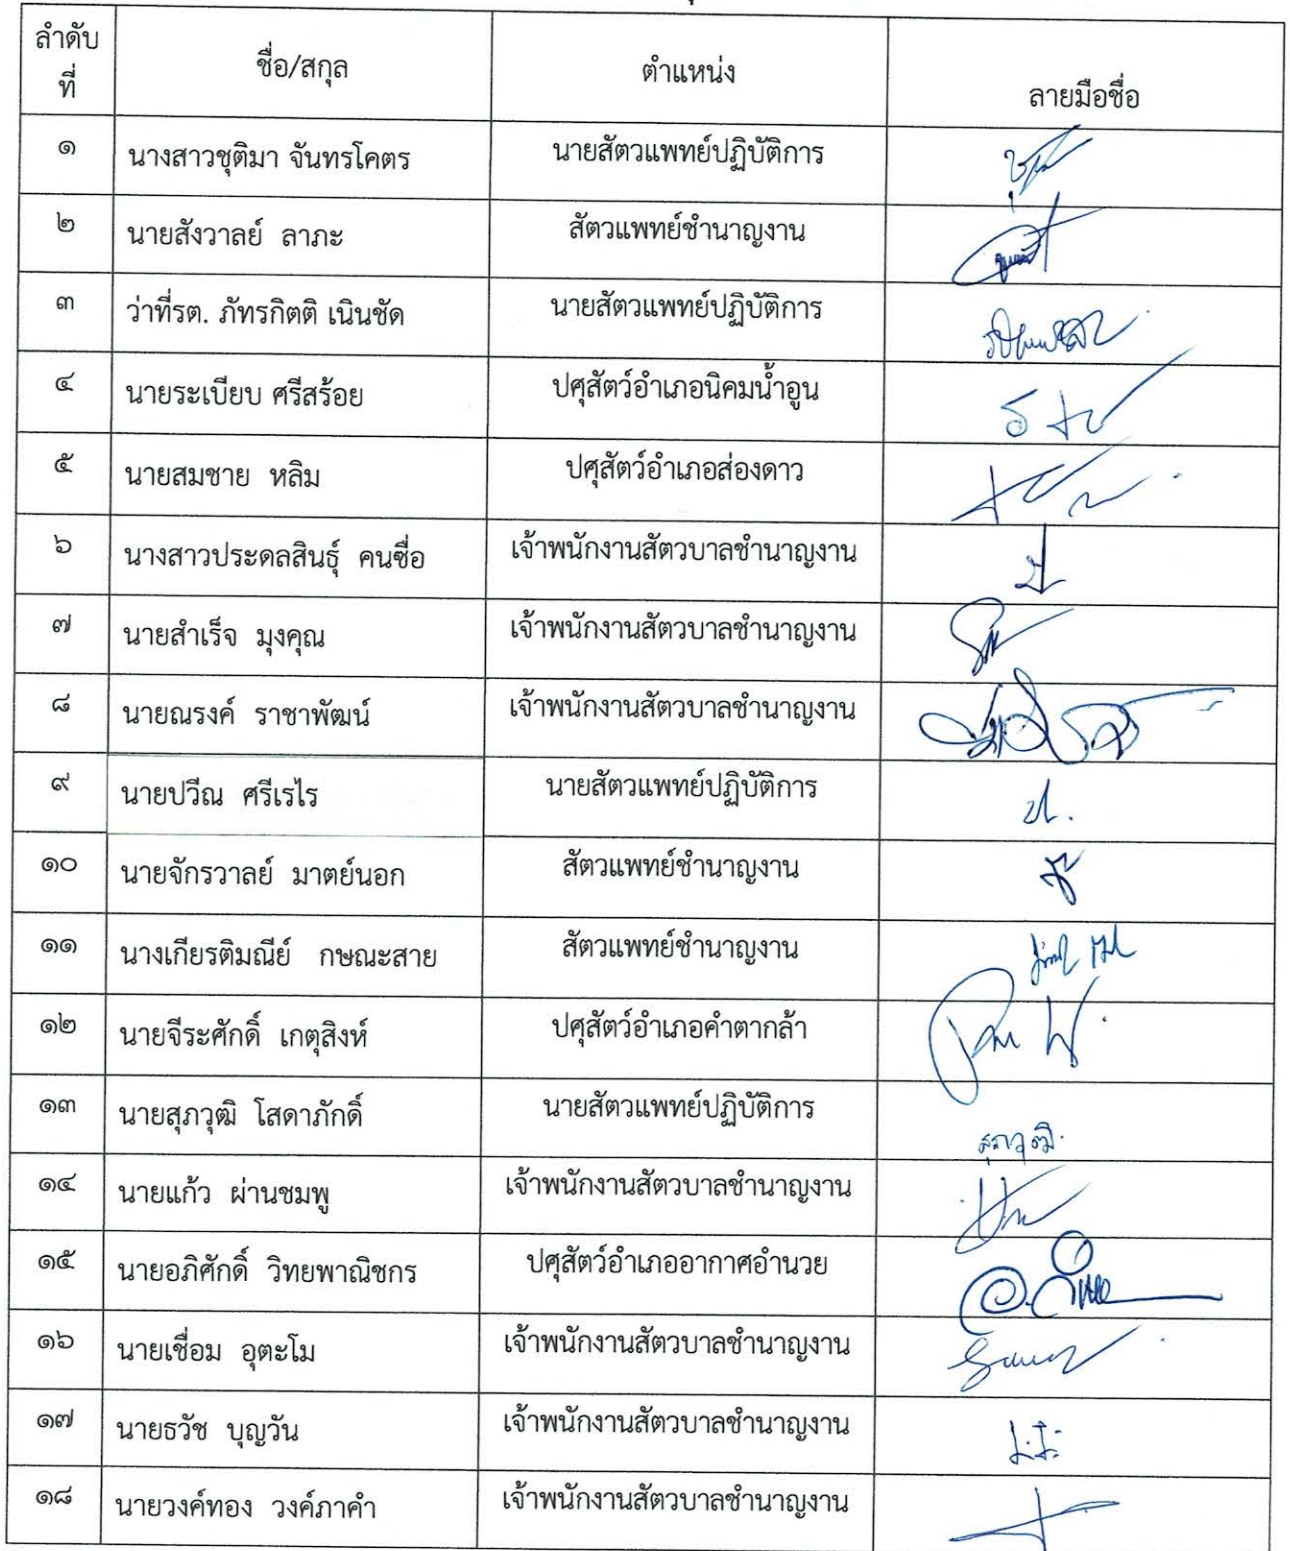 ลำดับ
ที่
ชื่อ/สกุล
ตำแหน่ง
ลายมือชื่อ
๑ นางสาวชุติมา จันทรโคตร นายสัตวแพทย์ปฏิบัติการ
๒ นายสังวาลย์ ลาภะ สัตวแพทย์ชำนาญงาน
๓ ว่าที่รต. ภัทรกิตติ เนินชัด นายสัตวแพทย์ปฏิบัติการ
๔ นายระเบียบ ศรีสร้อย ปศุสัตว์อำเภอนิคมน้ำอูน
๕ นายสมชาย หลิม ปศุสัตว์อำเภอส่องดาว
๖ นางสาวประดลสินธุ์ คนซื่อ เจ้าพนักงานสัตวบาลชำนาญงาน
๗ นายสำเร็จ มุงคุณ เจ้าพนักงานสัตวบาลชำนาญงาน
๘ นายณรงค์ ราชาพัฒน์ เจ้าพนักงานสัตวบาลชำนาญงาน
๙ นายปวีณ ศรีเรไร นายสัตวแพทย์ปฏิบัติการ
๑๐ นายจักรวาลย์ มาตย์นอก สัตวแพทย์ชำนาญงาน
๑๑ นางเกียรติมณีย์ กษณะสาย สัตวแพทย์ชำนาญงาน
๑๒ นายจีระศักดิ์ เกตุสิงห์ ปศุสัตว์อำเภอคำตากล้า
๑๓ นายสุภวุฒิ โสดาภักดิ์ นายสัตวแพทย์ปฏิบัติการ สุภวุฒิ
๑๔ นายแก้ว ผ่านชมพู เจ้าพนักงานสัตวบาลชำนาญงาน
๑๕ นายอภิศักดิ์ วิทยพาณิชกร ปศุสัตว์อำเภออากาศอำนวย
๑๖ นายเชื่อม อุตะโม เจ้าพนักงานสัตวบาลชำนาญงาน
๑๗ นายธวัช บุญวัน เจ้าพนักงานสัตวบาลชำนาญงาน
๑๘ นายวงค์ทอง วงค์ภาคำ เจ้าพนักงานสัตวบาลชำนาญงาน